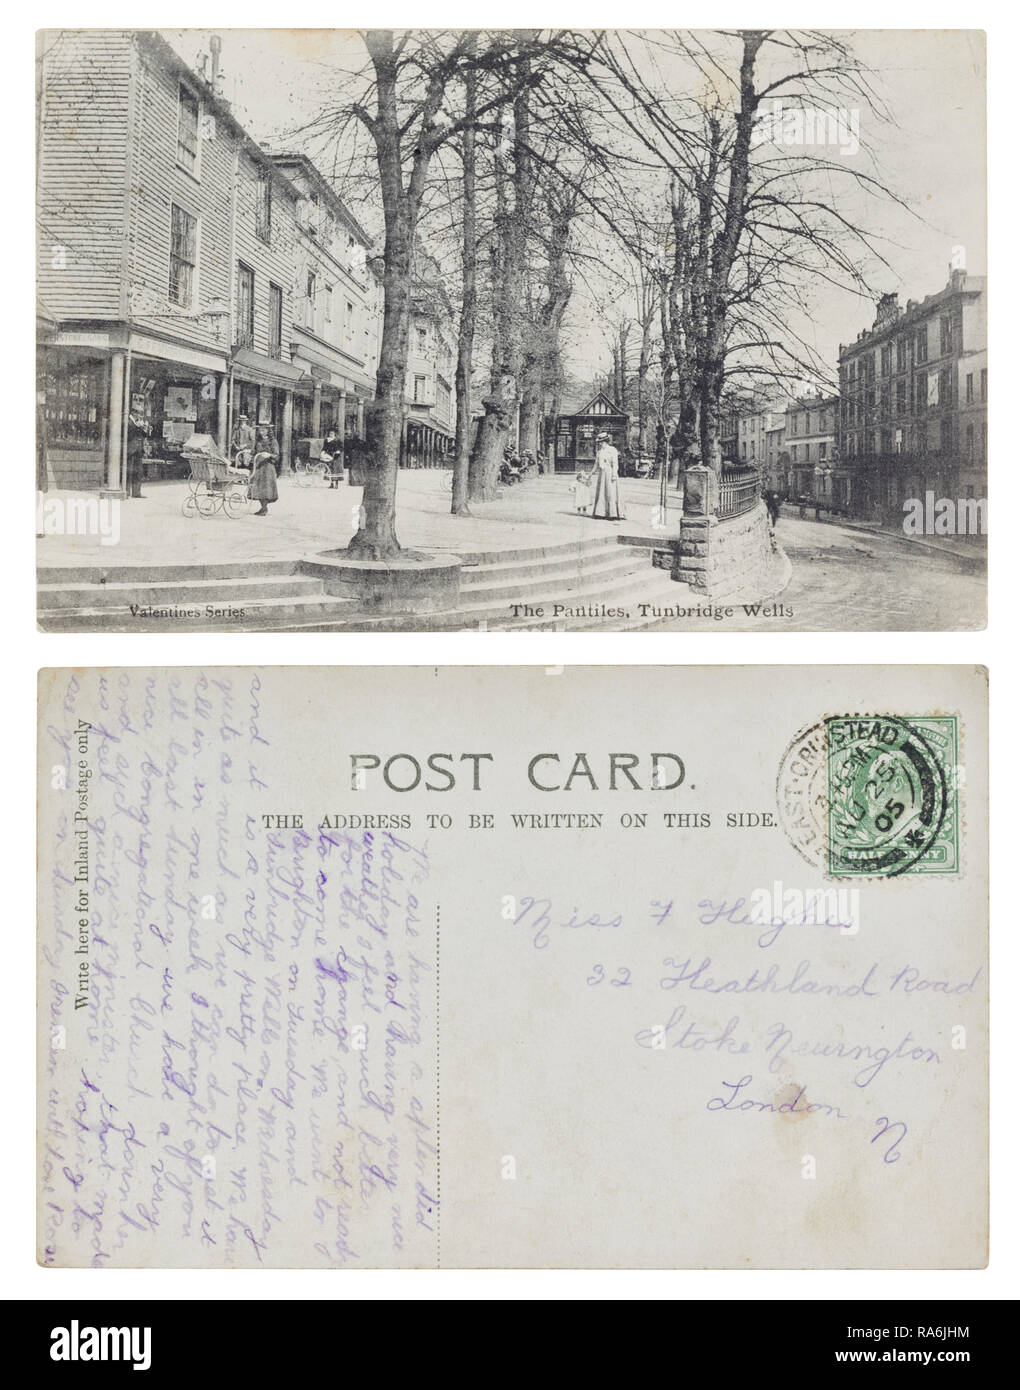 Valentines Series
The Pantiles, Tunbridge Wells
POST CARD.
THE ADDRESS TO BE WRITTEN ON THIS SIDE.
Write here for Inland Postage only
EAST GRINSTEAD
AU 25
05
HALFPENNY
Miss F Hughes
32 Heathland Road
Stoke Newington
London
N
We are having a splendid
holiday and having very nice
weather I feel much better
for the change, and not ready
to come home. We went to
Brighton on Tuesday and
Tunbridge Wells on Wednesday
it is a very pretty place. We have
quite as much as we can do to get it
all in in one week I thought of you
all last Sunday we have a very
nice Congregational Church down here
and such a nice minister, that made
us feel quite at home. Hoping to
see you on Sunday with love Rose
and it
alamy
Image ID: RA6JHM
www.alamy.com